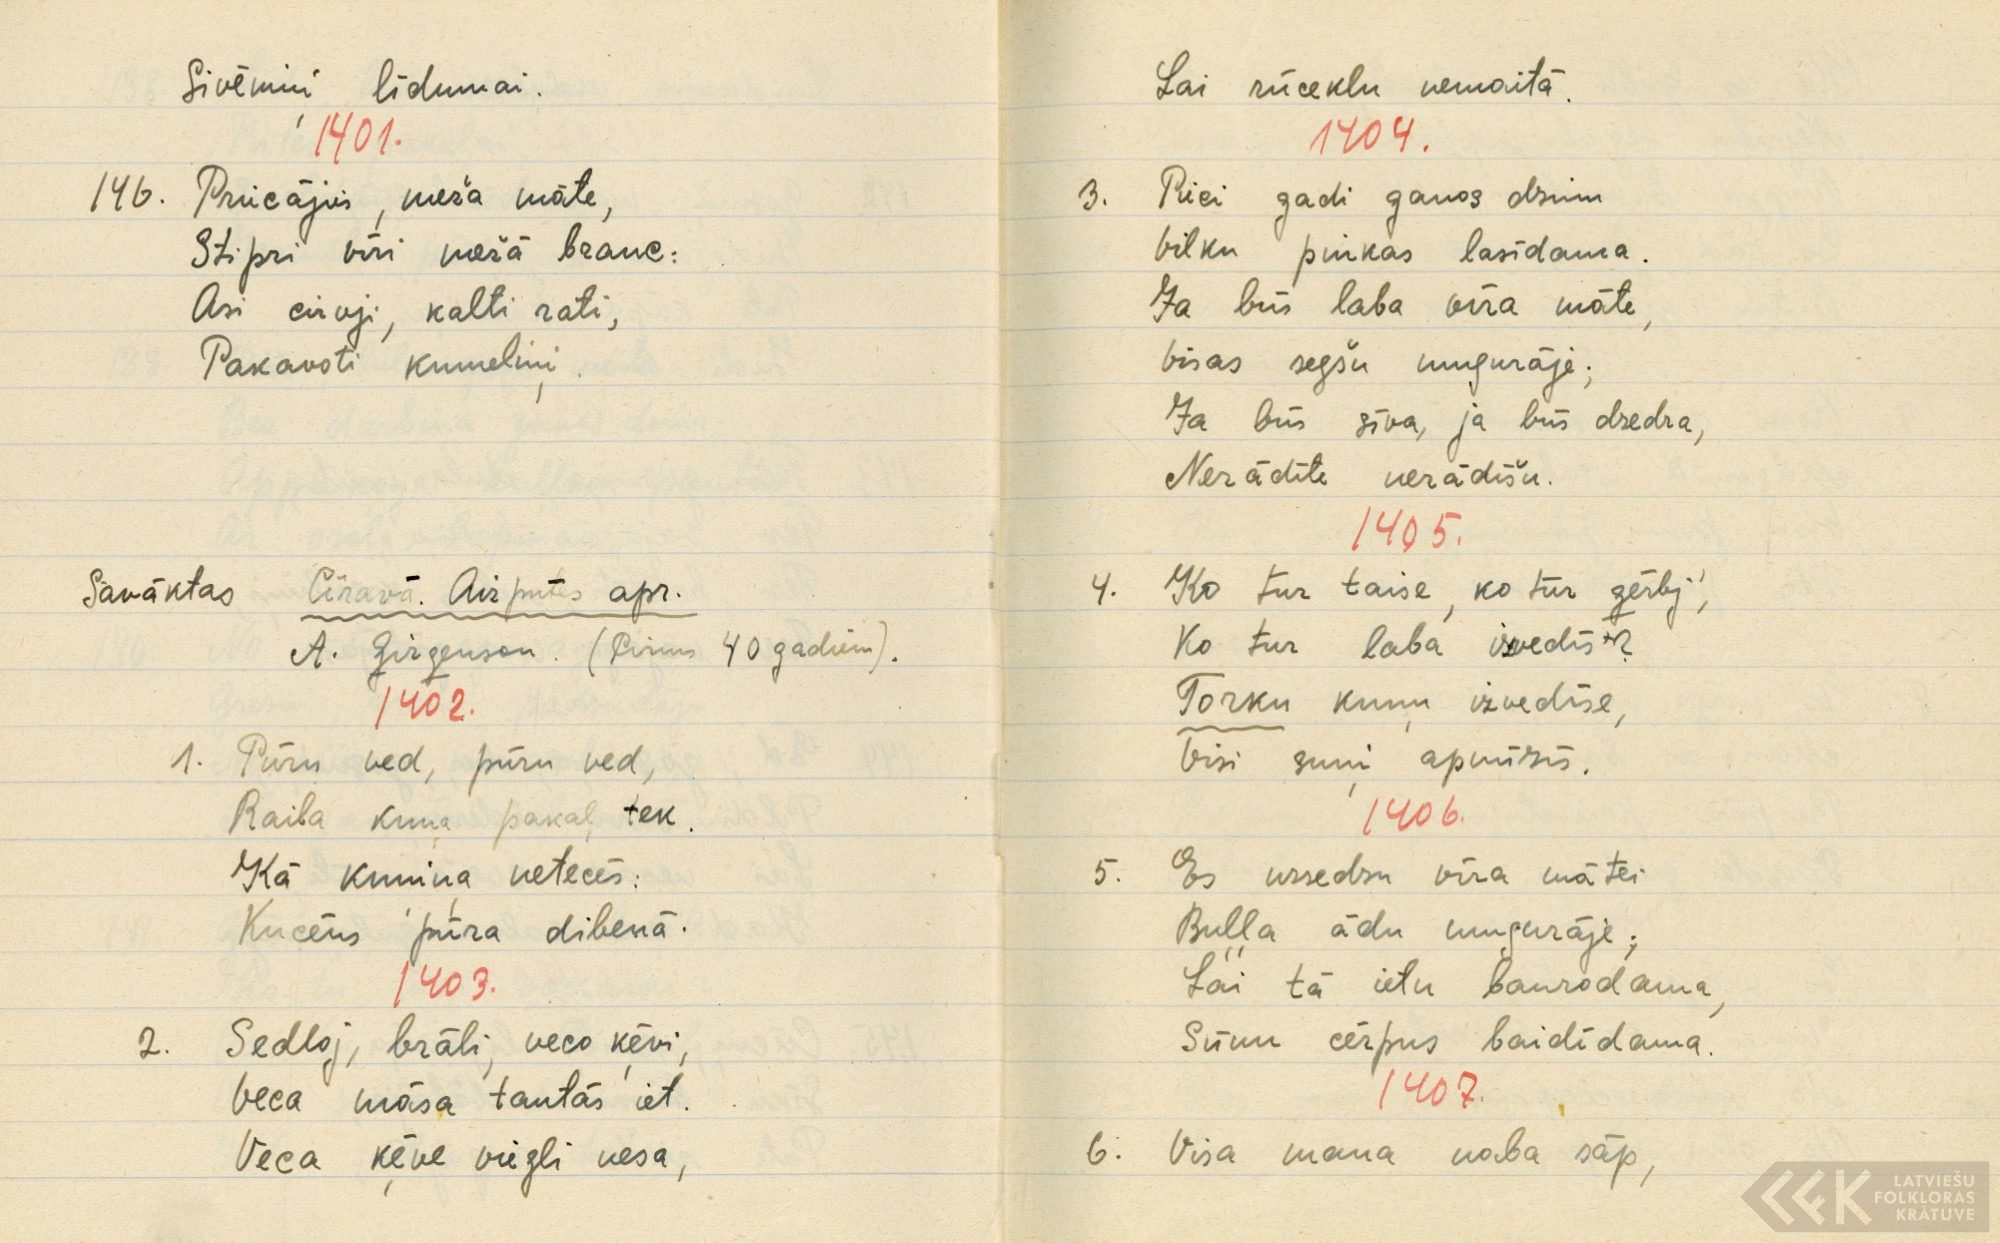 Sivēniņi līdumai.
1401.
146. Priecājies, meža māte,
Stipri vīri mežā brauc:
Asi cirvji, kalti rati,
Pakavoti kumeliņi.
Savāktas Cīravā. Aizputes apr.
A. Ģirgenson. (Pirms 40 gadiem).
1402.
1. Pūru ved, pūru ved,
Raiba kuņa pakaļ tek.
Kā kuniņa netecēs:
Kucēns pūra dibenā.
1403.
2. Sedloj, brāli, veco ķēvi,
Veca māsa tautās iet.
Veca ķēve viegli nesa,
Lai rūceklu nemaitā.
1404.
3. Pieci gadi ganos dzinu
Vilku pinkas lasīdama.
Ja būs laba vīra māte,
Visas segšu mugurāje;
Ja būs sīva, ja būs dzedra,
Nerādīte nerādīšu.
1405.
4. Ko tur taise, ko tur ģērbj',
Ko tur laba izvedīs?
Torku kuņu izvedīse,
Visi suņi apmīzīs.
1406.
5. Es uzsedzu vīra mātei
Buļļa ādu mugurāje;
Lai tā ietu baurodama,
Sūnu cērpus baidīdama.
1407.
6. Visa mana naba sāp,
LATVIEŠU
FOLKLORAS
KRĀTUVE